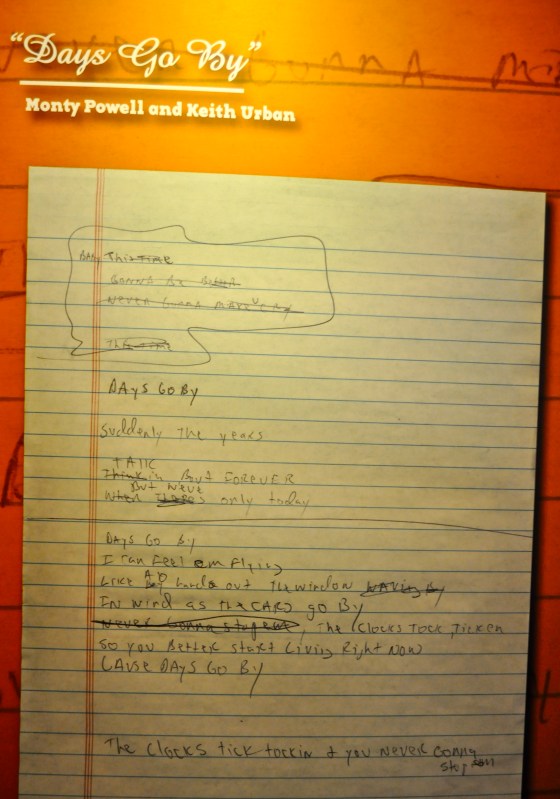 "Days Go By"
Monty Powell and Keith Urban
Baby This time
GONNA BE
NEVER GONNA MAKE U CRY
This time
DAYS GO BY
Suddenly The years
TAlK
Thinkin Bout FOREVER
But We've
When only today
DAYS GO BY
I can Feel em Flying
Like A hands out The window waving By
IN wind as The CARS go By
Never Gonna stop em, The Clocks Tock Ticken
SO you Better start Living Right Now
CAUSE DAYS GO BY
The Clocks tick tockin & you Never Gonna
stop em